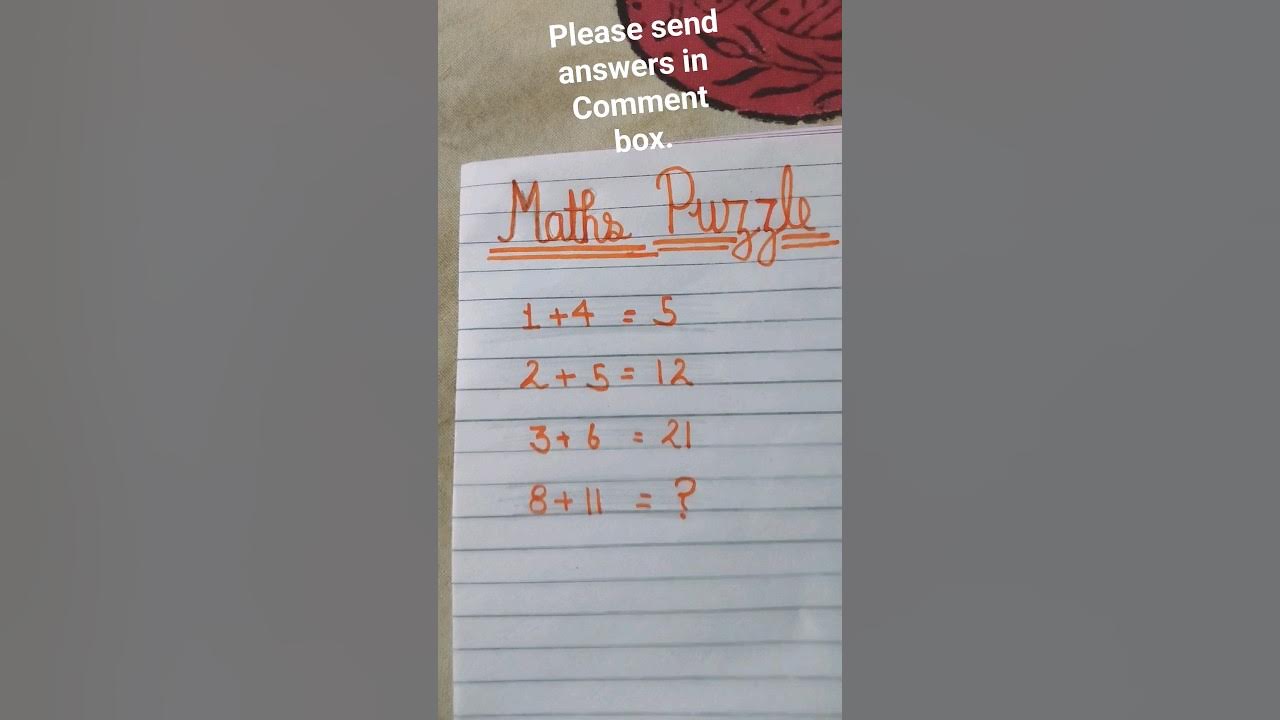 Please send
answers in
Comment
box.
Maths Puzzle
1+4 = 5
2+5= 12
3+6 = 21
8+11 = ?